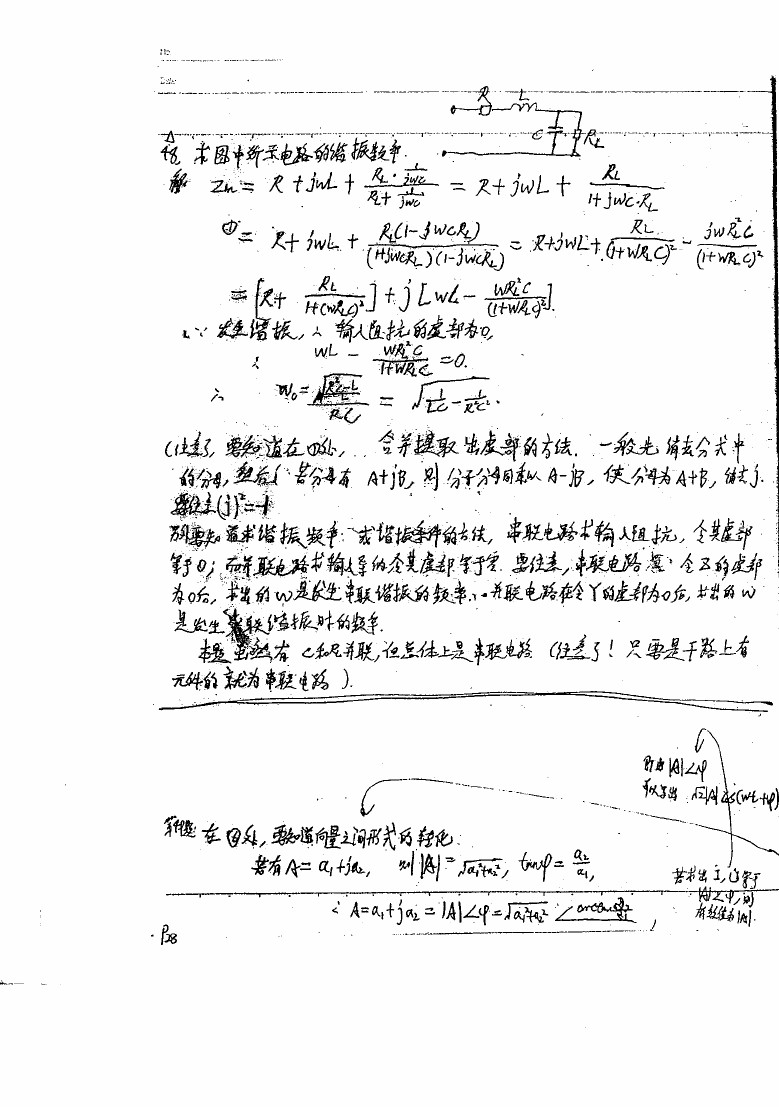 No
Date
R L
C R_L
48. 求图中所示电路的谐振频率.
解 Zin = R + jwL + (R_L · 1/jwc)/(R_L + 1/jwc) = R + jwL + R_L/(1+jwC·R_L)
① = R + jwL + R_L(1-jwCR_L)/((1+jwCR_L)(1-jwCR_L)) = R+jwL+ R_L/(1+(wR_LC)²) - jwR_L²C/(1+(wR_LC)²)
= [R+ R_L/(1+(wR_LC)²)] + j[wL - wR_L²C/(1+(wR_LC)²)].
∵ 发生谐振, ∴ 输入阻抗的虚部为0,
∴ wL - wR_L²C/(1+wR_LC) = 0.
∴ w₀ = = √(1/LC - 1/R²C²).
(注意了, 要知道在①处, 合并提取出虚部的方法. 一般先消去分式中
的分母, 然后(若分母有 A+jB, 则分子分母同乘以 A-jB, 使分母为A+B, 消去j.
要注意(j)²=-1
别要知道求谐振频率 或谐振条件的方法, 串联电路求输入阻抗, 令其虚部
等于0; 而并联电路求输入导纳令其虚部等于零. 要注意, 串联电路 令Z的虚部
为0后, 求出的w是发生串联谐振的频率. 并联电路在令Y的虚部为0后, 求出的w
是发生 联谐振时的频率.
本题虽然有 C和R_L并联, 但总体上是串联电路 (注意了! 只要是干路上有
元件的就为串联电路 ).
|A|∠φ
√2|A| (wt+φ)
在 处, 要知道向量之间形式的转化.
若有 A = a₁+ja₂, 则|A| = √(a₁²+a₂²), tanφ = a₂/a₁,
∴ A=a₁+ja₂ = |A|∠φ = √(a₁²+a₂²) ∠arctan a₂/a₁,
若求出 I, 等于
|A|∠φ, 则
有效值为|A|.
P28